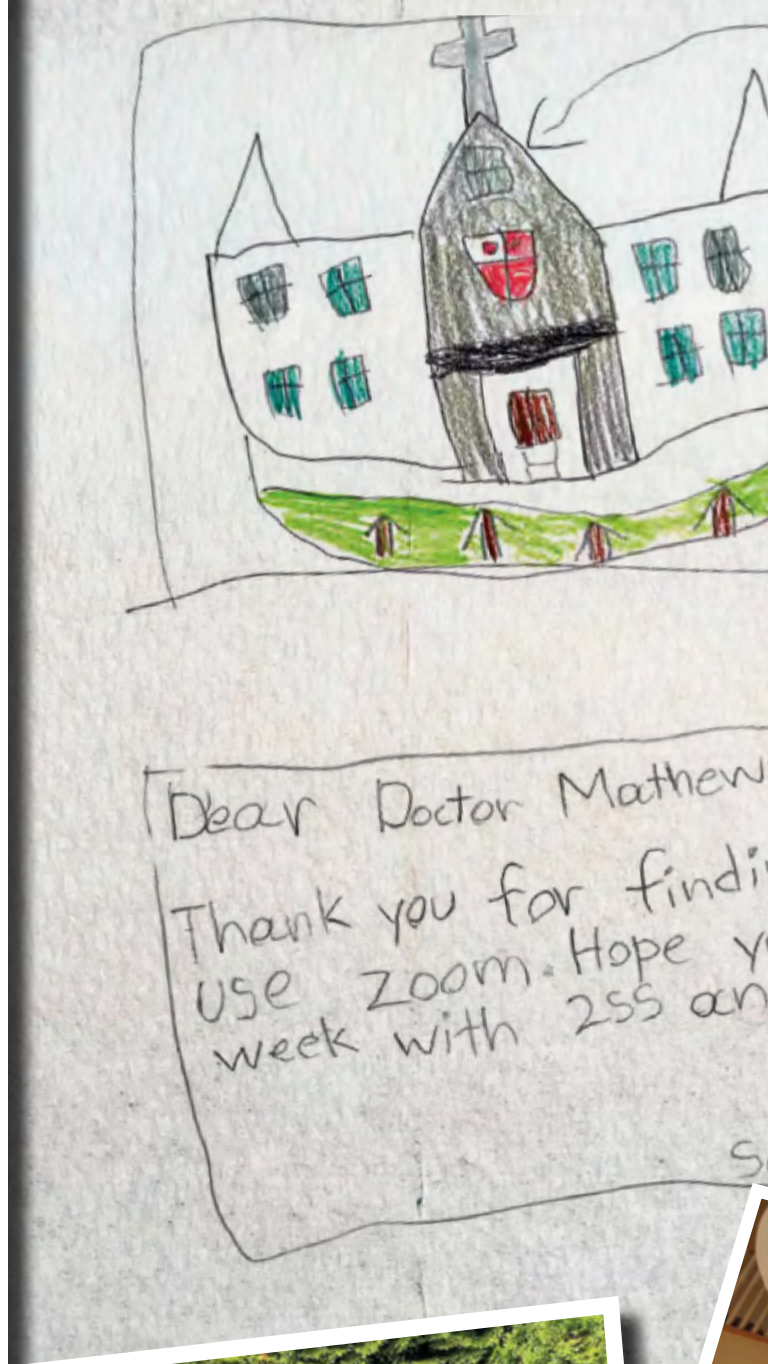 Dear Doctor Mathew
Thank you for findi
use zoom. Hope y
week with 2SS an
S